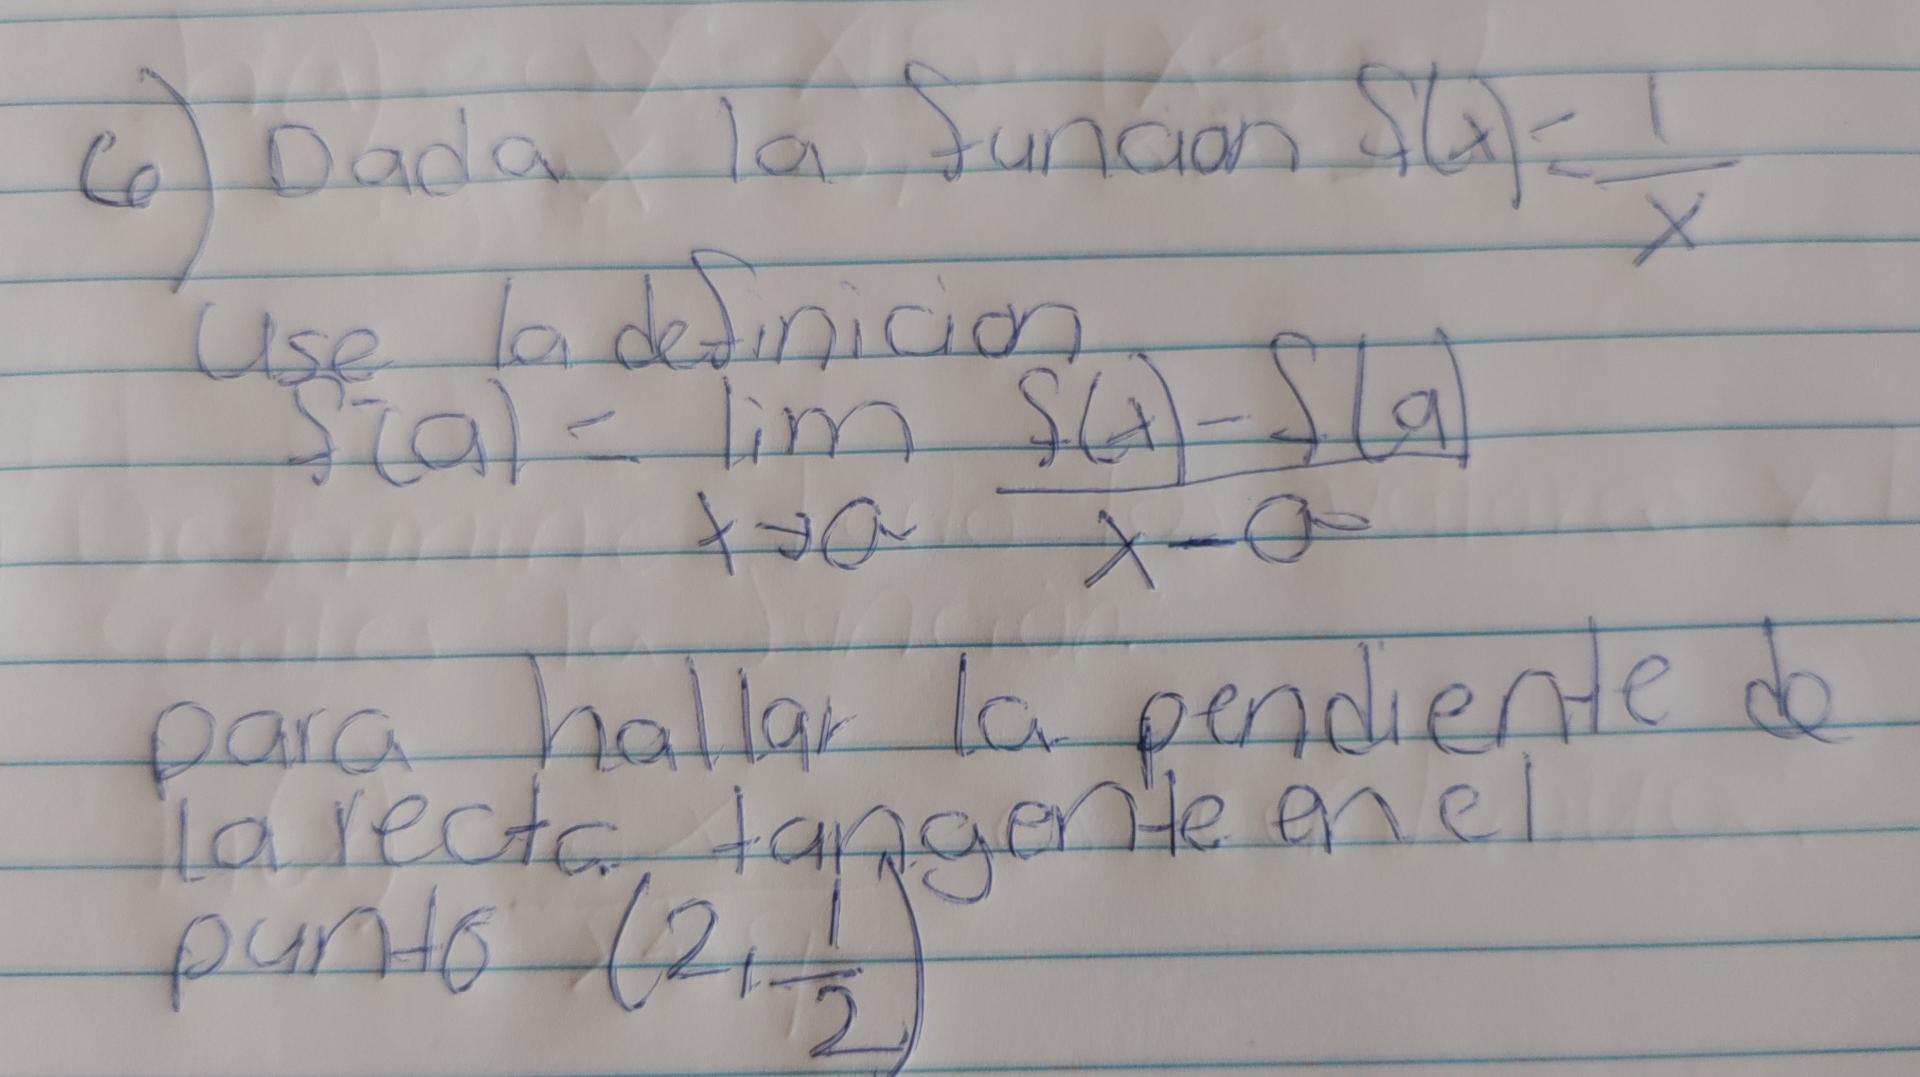 6) Dada la funcion f(x) = 1/x
Use la definicion
f'(a) = lim x→a f(x) - f(a) / x - a
para hallar la pendiente de
la recta tangente en el
punto (2, 1/2)